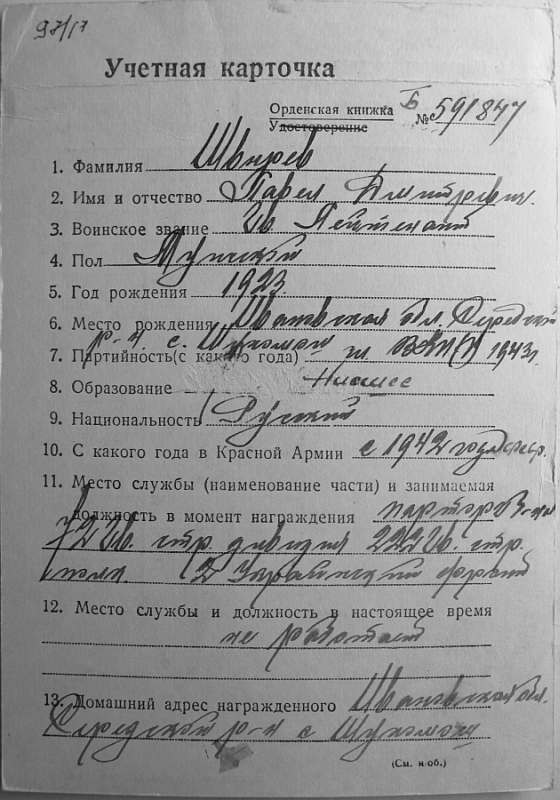 97/17
Учетная карточка
Орденская книжка Б
Удостоверение № 591847
1. Фамилия Швырев
2. Имя и отчество Павел Дмитревич.
3. Воинское звание Гв. Лейтенант
4. Пол Мужской
5. Год рождения 1923.
6. Место рождения Ивановская обл. Середской
р-н. с.
7. Партийность(с какого года) чл. ВКП(б) 1943г.
8. Образование Низшее
9. Национальность Русский
10. С какого года в Красной Армии с 1942 года
11. Место службы (наименование части) и занимаемая
должность в момент награждения парторг
72 Гв. стр. дивизия 222 Гв. стр.
полк. 2 Украинский фронт
12. Место службы и должность в настоящее время
не работает
13. Домашний адрес награжденного Ивановская обл.
Середской р-н с
(См. н об.)